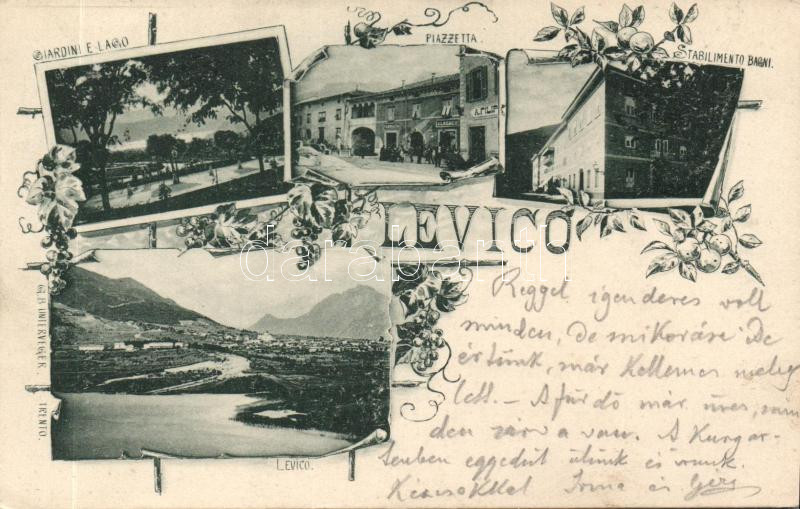 GIARDINI E LAGO
PIAZZETTA.
STABILIMENTO BAGNI.
LEVICO
darabanth
G. B. UNTERVEGER. TRENTO.
LEVICO.
Reggel igenderes volt
minden, de mikorára De
értünk, már Kellemes meleg
lett. – A fürdő már üres, min
den zárva van. A Kurgar-
tenben egyedül ülünk és
Irma és